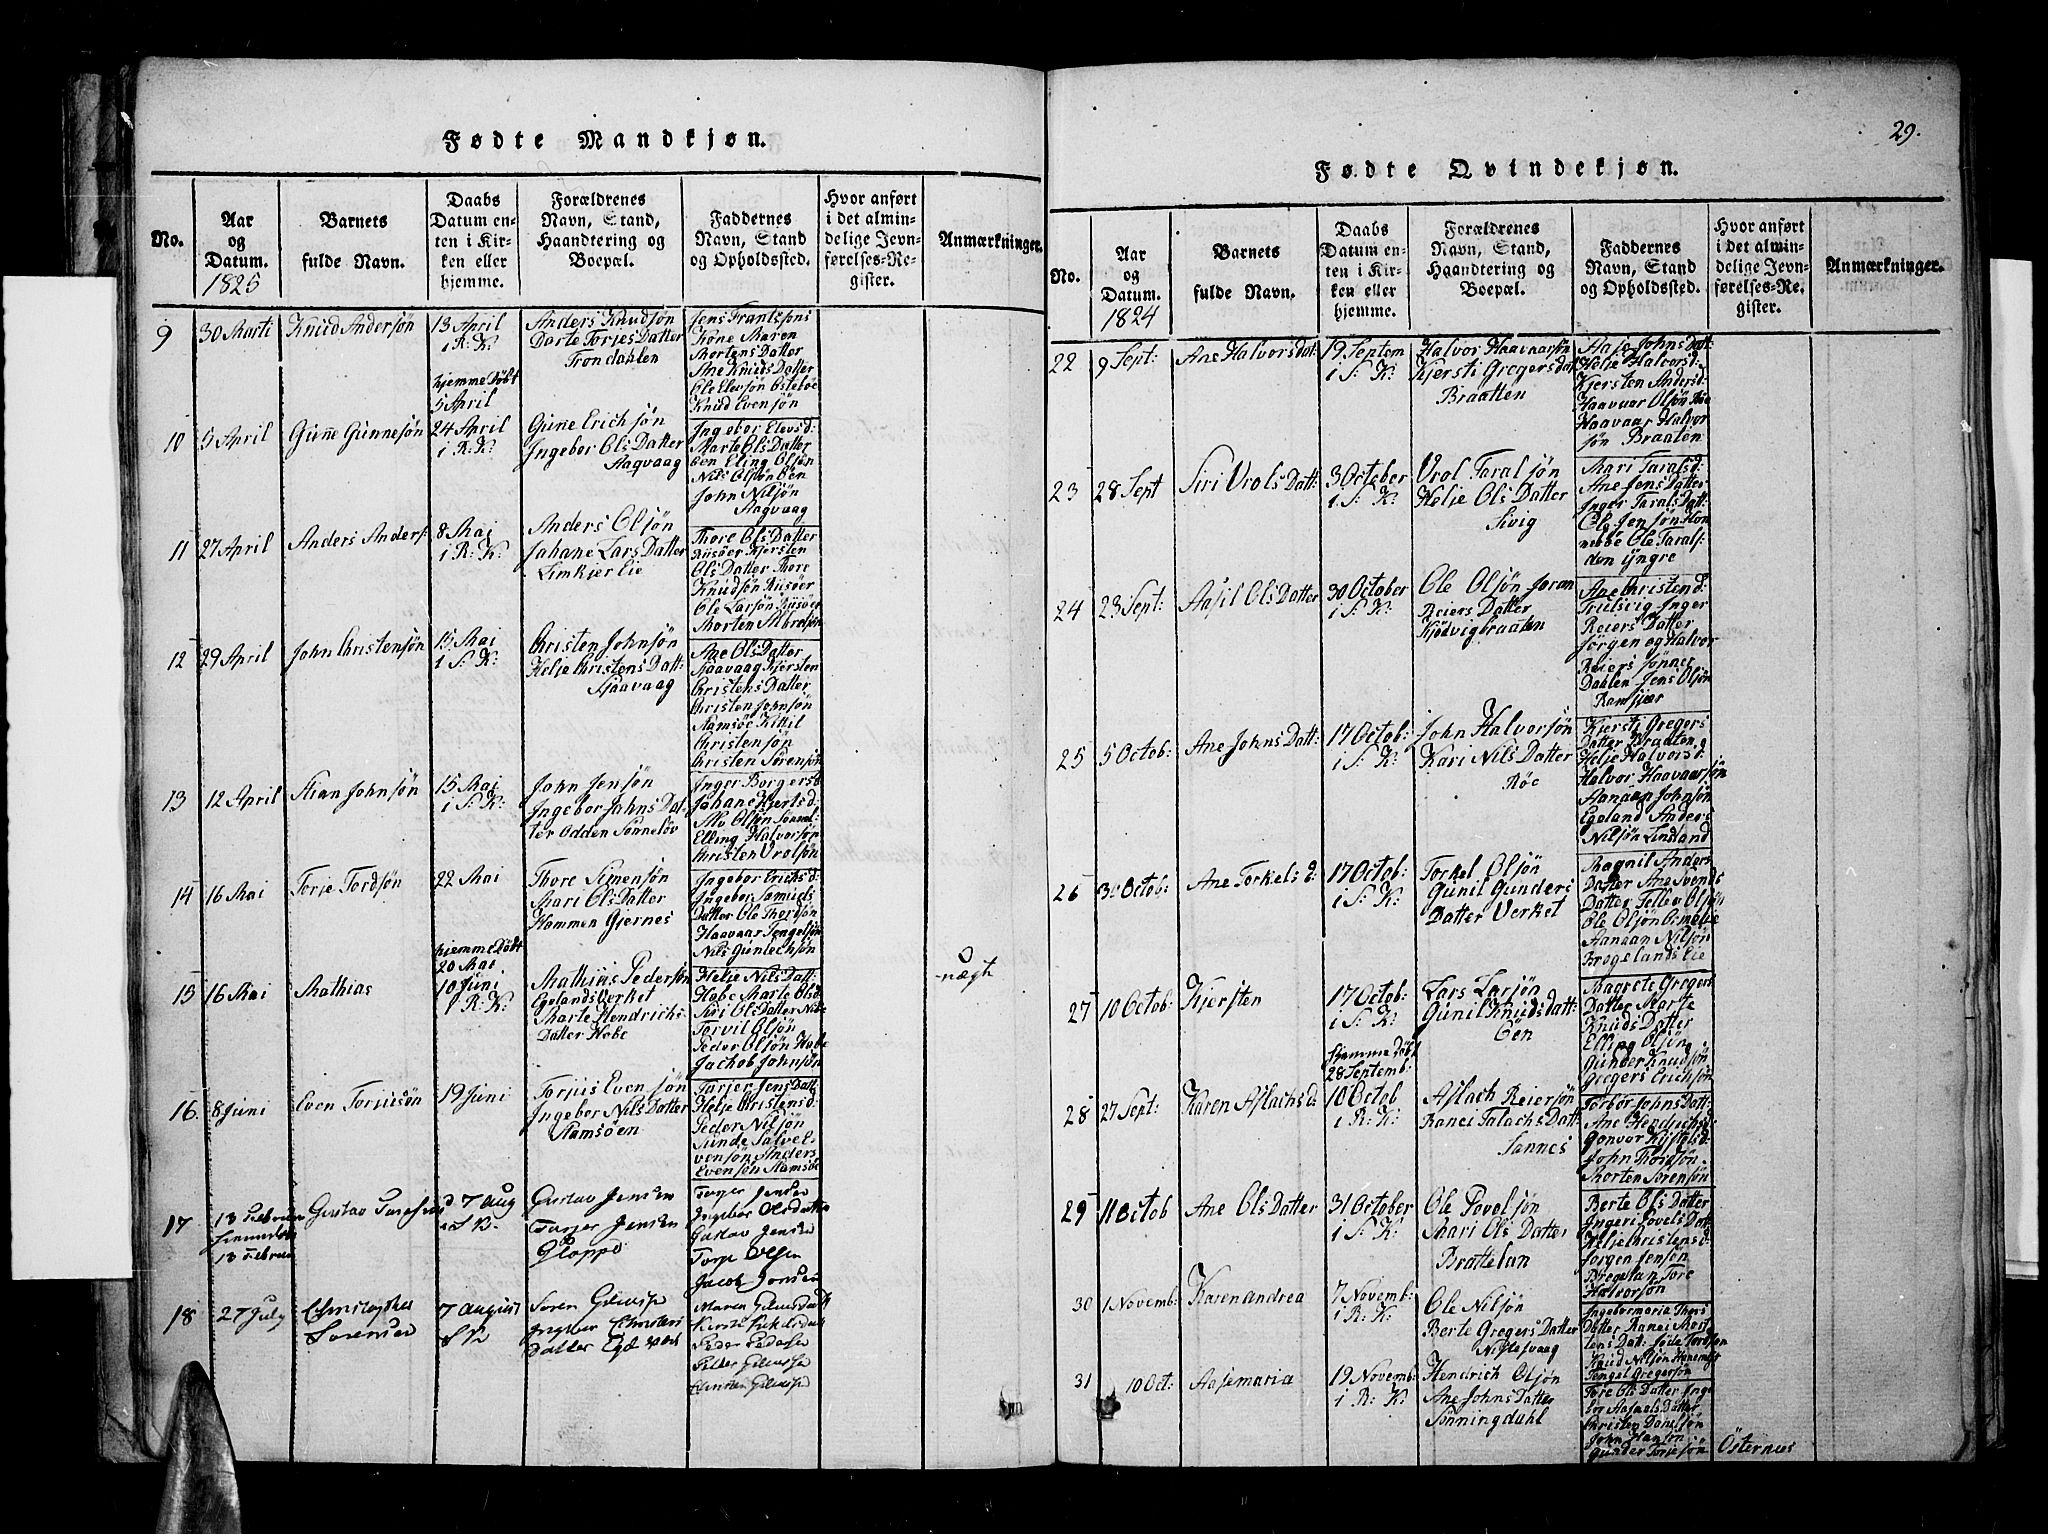 Fødte Mandkjøn.
No.
Aar
og
Datum.
1825
Barnets
fulde Navn.
Daabs
Datum en-
ten i Kir-
ken eller
hjemme.
Forældrenes
Navn, Stand,
Haandtering og
Boepæl.
Faddernes
Navn, Stand
og Opholdssted.
Hvor anført
i det almin-
delige Jevn-
førelses-Re-
gister.
Anmærkninger.
9
30 Marti
Knud Andersøn
13 April
i R: K:
Anders Knudsøn
Dorte Torjes Datter
Trondahlen
Jens Frantssøns
Kone Maren
Mortens Datter
Ane Knuds Datter
Ole Elevsøn Osteböe
Knud Evensøn
10
5 April
Gunne Gunnesøn
hjemme Døbt
5 April
24 April
i R: K:
Gune Erichsøn
Ingebor Ols Datter
Aaqvaag
Ingebor Elevs d:
Marte Ols Datter
Een Eling Olsøn
Nils Olsøn Een
John Nilsøn
Aaqvaag
11
27 April
Anders Anders:
8 Mai
i R: K:
Anders Olsøn
Johane Lars Datter
Limkjer Eie
Thore Ols Datter
Riisøer Kjersten
Ols Datter Thore
Knudsøn Riisøer
Ole Larsøn Riisøer
Morten Albretsøn
12
29 April
John Christensøn
15 Mai
i S: K:
Christen Johnsøn
Helje Christens Datt:
Sjaavaag
Ane Ols Datter
Sjaavaag Kjersten
Christens Datter
Christen Johnsøn
Ramsøe Kittil
Christensøn
Christen Sørensøn
13
12 April
Stian Johnsøn
15 Mai
i S: K:
John Jensøn
Ingebor Johns Dat-
ter Odden Sønneløv
Inger Borgers:
Johane Kjerls d:
Alv Olsøn Sønnel:
Elling Halvorsøn
Christen Vrolsøn
14
16 Mai
Torje Tordsøn
22 Mai
Thore Simensøn
Mari Ols Datter
Hammen Gjernes
Ingebor Erichs d:
Ingebor Samuels
Datter Ole Thordsøn
Haavaar Tengelsøn
Nils Gunlechsøn
15
16 Mai
Mathias
hjemme Døbt
20 Mai
10 Juni
i R: K:
Mathiis Pedersøn
Egelands Verket
Marte Hendrichs
Datter Hobe
Helje Nils Datt:
Hobe Marte Ols d:
Siri Ols Datter
Torvil Olsøn
Peder Olsøn Hobe
Jachob Johnsøn
nægt
16
8 Juni
Even Torjusøn
19 Juni
Torjus Evensøn
Ingebor Nils Datter
Ramsøen
Torjer Jens Datt
Helje Christens d:
Peder Nilsøn
Sunde Salvel
Evensøn Anders
Evensøn Ramsøe
17
13 Februar
13 Februar
Gustav
7 Aug
Gustav Jensen
Torjer Jensen
Gloppe
Torjer Jensen
Ingebor Olsdatter
Gustav Jensen
Torje Olsen
Jacob Jonsen
18
27 July
Christopher
Sorensen
7 august
S K
Soren
Ingebor Christens
Datter
Maren
Peder Pedersen
Fødte Qvindekjøn.
29.
No.
Aar
og
Datum.
1824
Barnets
fulde Navn.
Daabs
Datum en-
ten i Kir-
ken eller
hjemme.
Forældrenes
Navn, Stand,
Haandtering og
Boepæl.
Faddernes
Navn, Stand
og Opholdssted.
Hvor anført
i det almin-
delige Jevn-
førelses-Re-
gister.
Anmærkninger.
22
9 Sept:
Ane Halvorsdat:
19 Septem
i S: K:
Halvor Haavaarsøn
Kjersti Gregers dat
Braatten
Aase Johns Datt:
Helje Halvorsd:
Kjersten Anders d:
Haavaar Olsøn Röe
Haavaar Halvor
søn Braaten
23
28 Sept
Siri Vrols Datt:
3 October
i S: K:
Vrol Taralsøn
Helje Ols Datter
Sivig
Mari Tarals d:
Ane Jens Datter
Inger Tarals Datt:
Ole Jensøn Hon
nebbe Ole Tarals:
den yngre
24
23 Sept:
Aasil Ols Datter
30 October
i S: K:
Ole Olsøn Joran
Reiers Datter
Kjødvigbraaten
Ane Christen d:
Trulsvig Inger
Reiers Datter
Jørgen og Halvor
Reiers Sønner
Dahlen Jens Olsøn
Ramsjær
25
5 Octob:
Ane Johns Datt:
17 Octob:
i S: K:
John Halvorsøn
Kari Nils Datter
Röe
Kjersti Gregers
Datter Braaten
Helje Halvors d:
Halvor Haavaarsøn
Aanaan Johnsøn
Egeland Anders
Nilsøn Lindland
26
3 Octob:
Ane Torkels d:
17 Octob:
i S: K:
Torkel Olsøn
Gunil Gunders
Datter Verket
Magnil Anders
Datter Ane Svends
Datter Tellev Olsøn
Ole Olsøn
Aanaan Nilsøn
Brogelands Eie
27
10 Octob:
Kjersten
17 Octob:
i S: K:
Lars Larsøn
Gunil Knuds datt:
Een
Magrete Gregers
Datter Marte
Knuds Datter
Elling Olsøn
Gunder Knudsøn
Gregers Erichsøn
28
27 Sept:
Karen Aslachs d:
hjemme Døbt
28 Septemb:
10 Octob
i R: K:
Aslach Reiersøn
Ranei Talachs Datt:
Sannes
Torbor Johns Datt:
Ane Hendrichs d:
Gonvor Kistels d:
John Thordsøn
Morten Sørensøn
29
11 Octob
Ane Ols Datter
31 October
i S: K:
Ole Povelsøn
Mari Ols Datter
Brattelan
Berte Ols Datter
Ingeri Povels Datt
Helje Christens d:
Jørgen Jensøn
Bregelan Tore
Halvorsøn
30
1 Novemb:
Karen Andrea
7 Novemb:
i R: K:
Ole Nilsøn
Berte Gregers Datter
Nipesvaag
Ingebormaria Thors
Datter Ranei Mor
tens Datt: Jöde Tordsøn
Knud Nilsøn Honemyr
Tengel Gregersøn
31
10 Oct:
Aasemaria
19 Novemb:
i R: K:
Hendrich Olsøn
Ane Johns Datter
Sønningdahl
Tore Ols Datter Inge
bor Aasuels Datter
Christen Danelsøn
John Hansøn
Gunder Torjesøn
Østernes